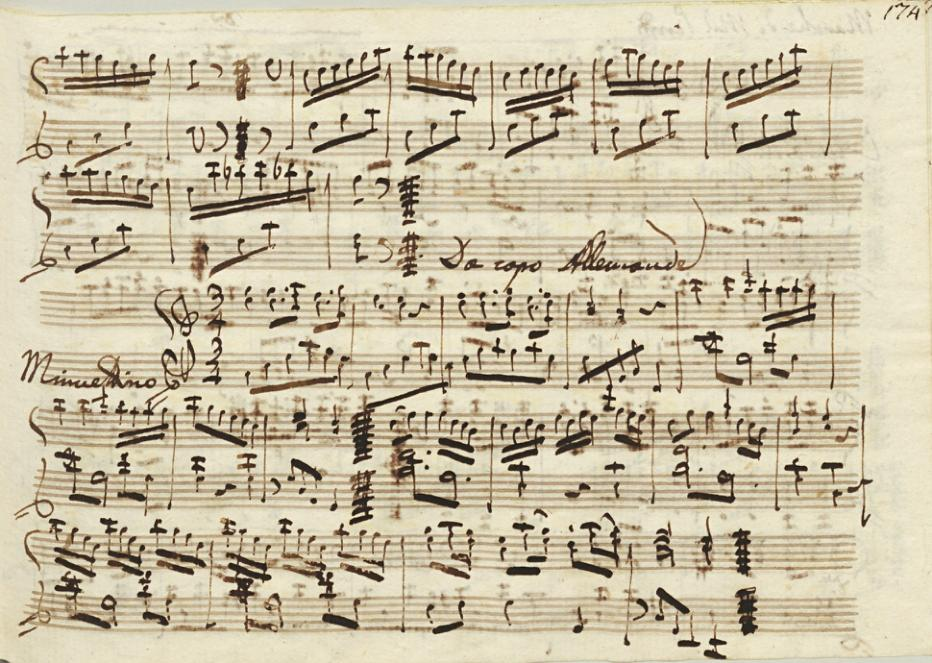 174
Da capo Allemande
3 4
Minuettino 3 4